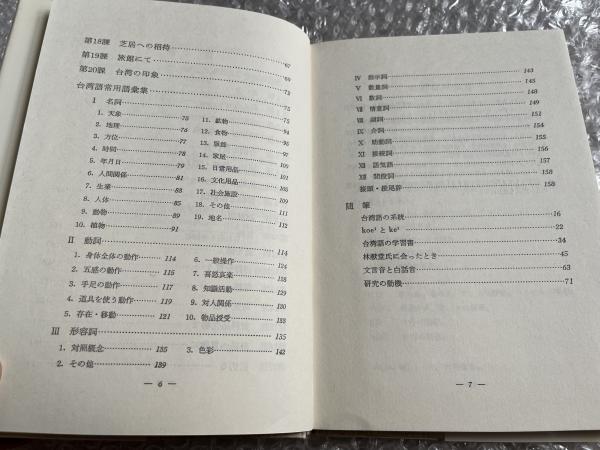 第18課 芝居への招待……67
第19課 旅館にて……69
第20課 台湾の印象……72
台湾語常用語彙集……75
I 名詞……75
1. 天象……75
2. 地理……76
3. 方位……77
4. 時間……78
5. 年月日……79
6. 人間関係……81
7. 生業……83
8. 人体……85
9. 動物……89
10. 植物……91
11. 鉱物……94
12. 食物……94
13. 服飾……99
14. 家屋……101
15. 日常用品……101
16. 文化用品……105
17. 社会施設……107
18. その他……111
19. 地名……112
II 動詞……114
1. 身体全体の動作……114
2. 五感の動作……115
3. 手足の動作……117
4. 道具を使う動作……119
5. 存在・移動……121
6. 一般操作……124
7. 喜怒哀楽……127
8. 知識活動……129
9. 対人関係……130
10. 物品授受……133
III 形容詞……135
1. 対照概念……135
2. その他……139
3. 色彩……142
— 6 —
IV 指示詞……143
V 数量詞……145
VI 数詞……148
VII 情意詞……149
VIII 副詞……151
IX 介詞……154
X 助動詞……155
XI 接続詞……156
XII 語気詞……157
XIII 間投詞……158
接頭・接尾辞……158
随筆
台湾語の系統……16
koe² と ke²……22
台湾語の学習書……34
林献堂氏に会ったとき……45
文言音と白話音……63
研究の動機……71
— 7 —